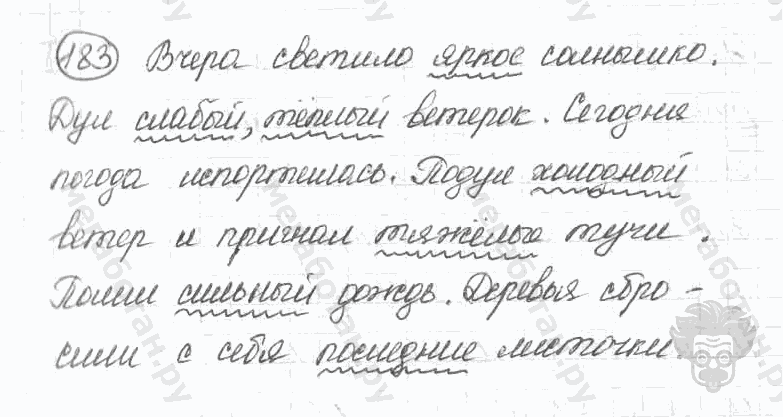 183 Вчера светило яркое солнышко.
Дул слабый, тёплый ветерок. Сегодня
погода испортилась. Подул холодный
ветер и пригнал тяжёлые тучи.
Полил сильный дождь. Деревья сбро-
сили с себя последние листочки.
мегаботан.ру